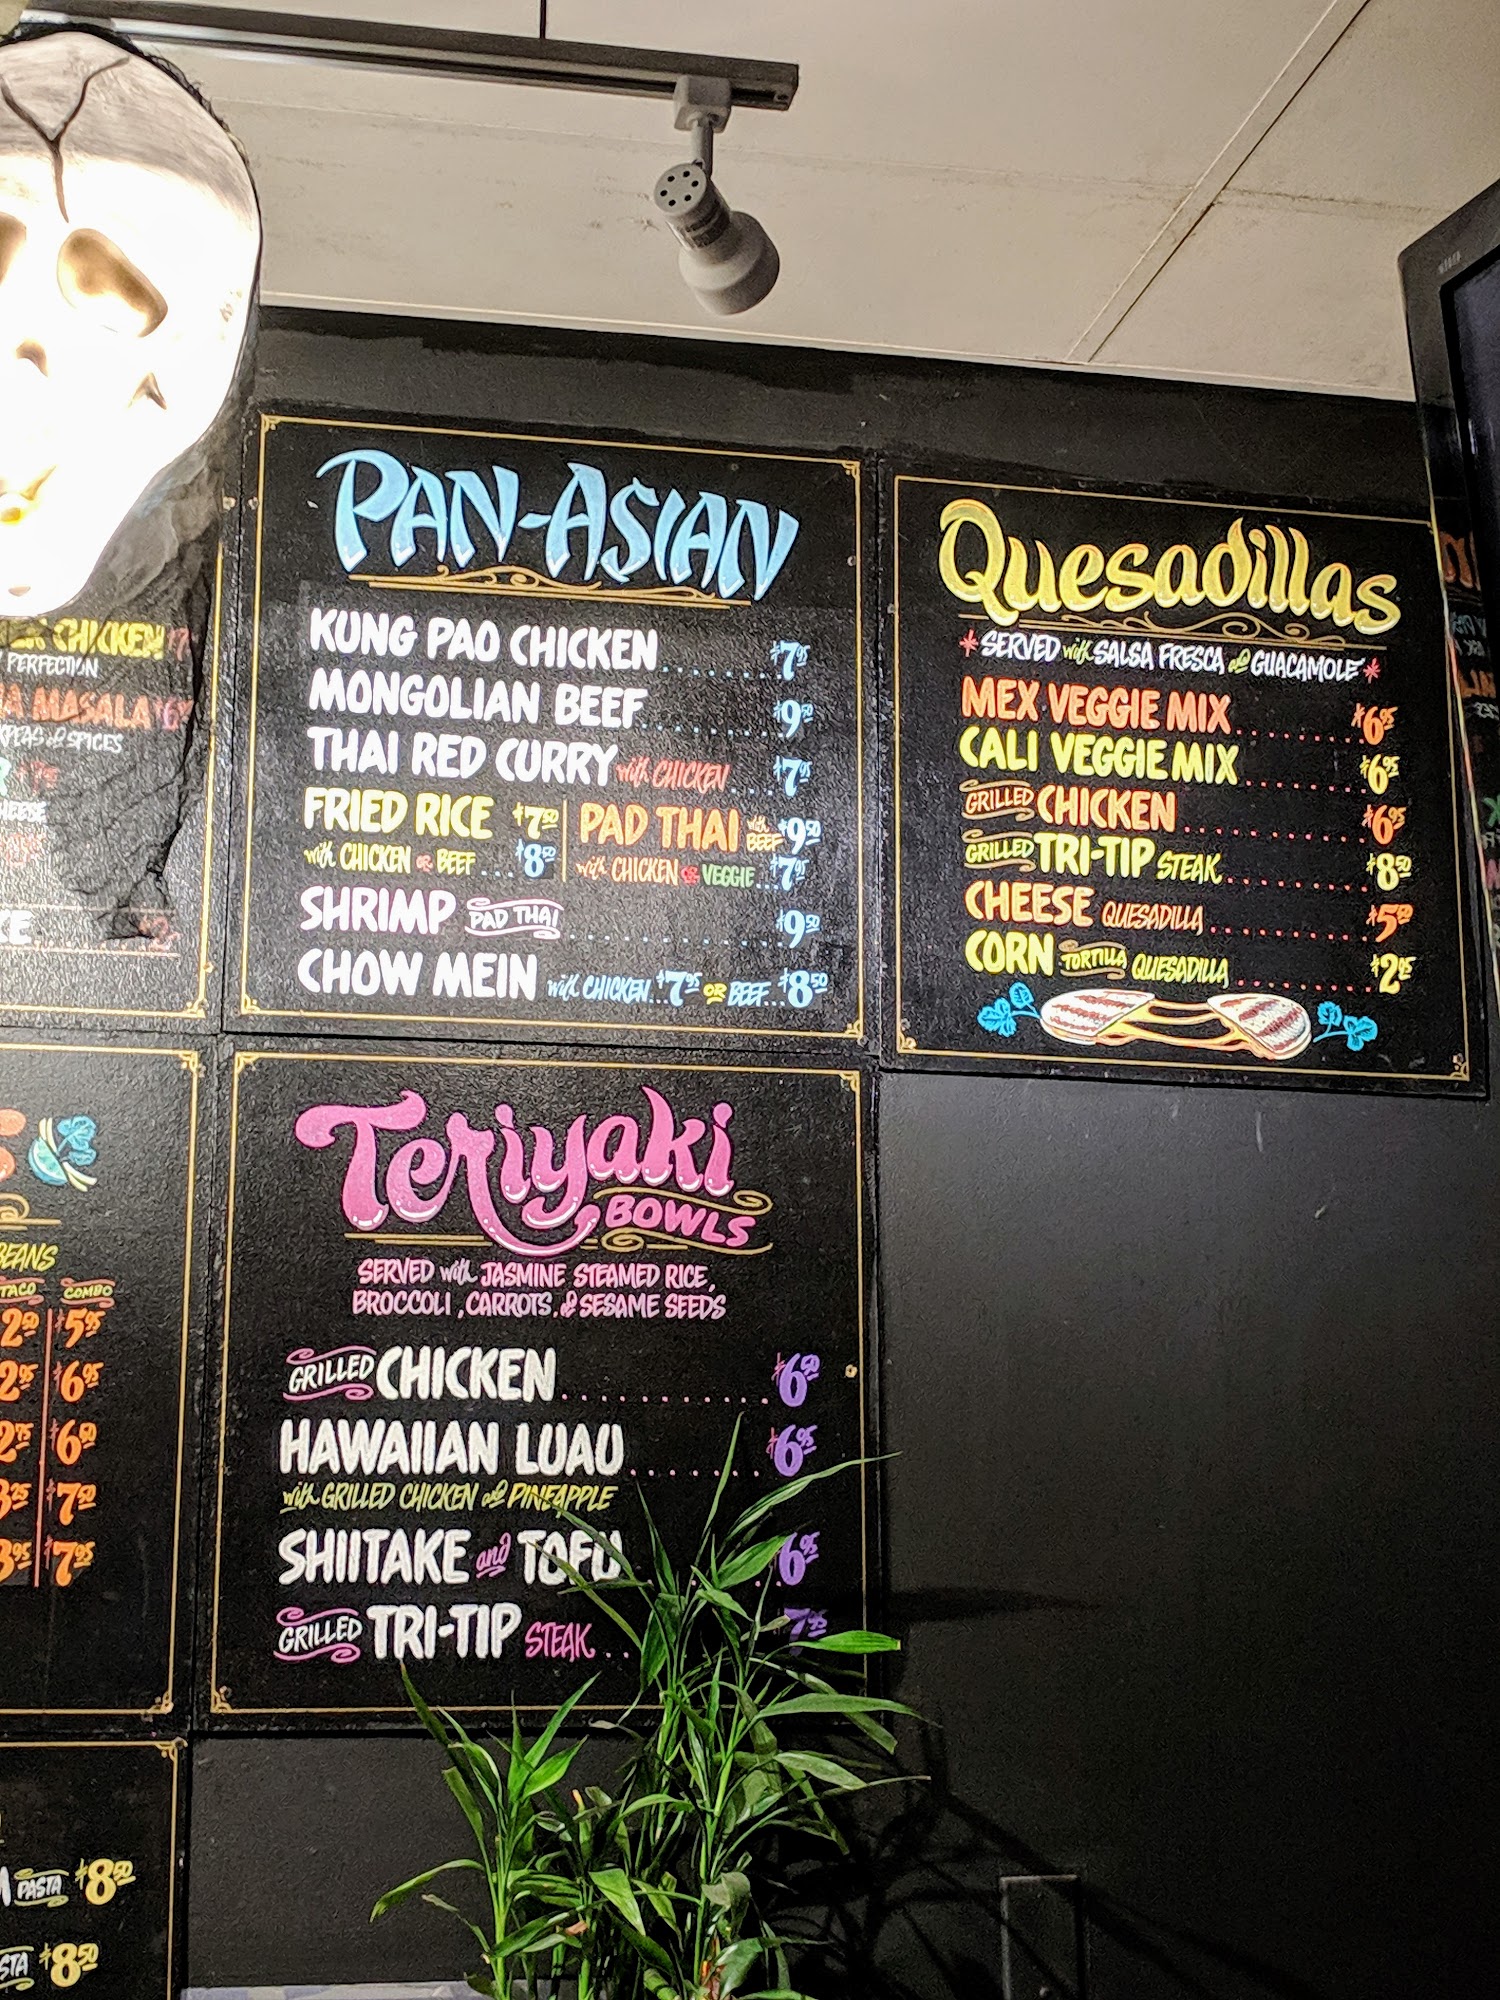 CHICKEN
PERFECTION
MASALA
& SPICES
BEANS
TACO COMBO
2.50 $5.95
2.95 $6.95
2.75 $6.50
3.25 $7.50
3.95 $7.95
PASTA $8.50
$8.50
PAN-ASIAN
KUNG PAO CHICKEN......$7.95
MONGOLIAN BEEF......$9.50
THAI RED CURRY with CHICKEN...$7.95
FRIED RICE $7.50
with CHICKEN or BEEF...$8.50
PAD THAI with BEEF $9.50
with CHICKEN or VEGGIE...$7.95
SHRIMP PAD THAI......$9.50
CHOW MEIN with CHICKEN...$7.95 or BEEF...$8.50
Quesadillas
*SERVED with SALSA FRESCA and GUACAMOLE*
MEX VEGGIE MIX......$6.95
CALI VEGGIE MIX......$6.95
GRILLED CHICKEN......$6.95
GRILLED TRI-TIP STEAK......$8.50
CHEESE QUESADILLA......$5.50
CORN TORTILLA QUESADILLA......$2.95
Teriyaki
BOWLS
SERVED with JASMINE STEAMED RICE,
BROCCOLI, CARROTS, & SESAME SEEDS
GRILLED CHICKEN......$6.50
HAWAIIAN LUAU......$6.95
with GRILLED CHICKEN and PINEAPPLE
SHIITAKE and TOFU $6.95
GRILLED TRI-TIP STEAK..